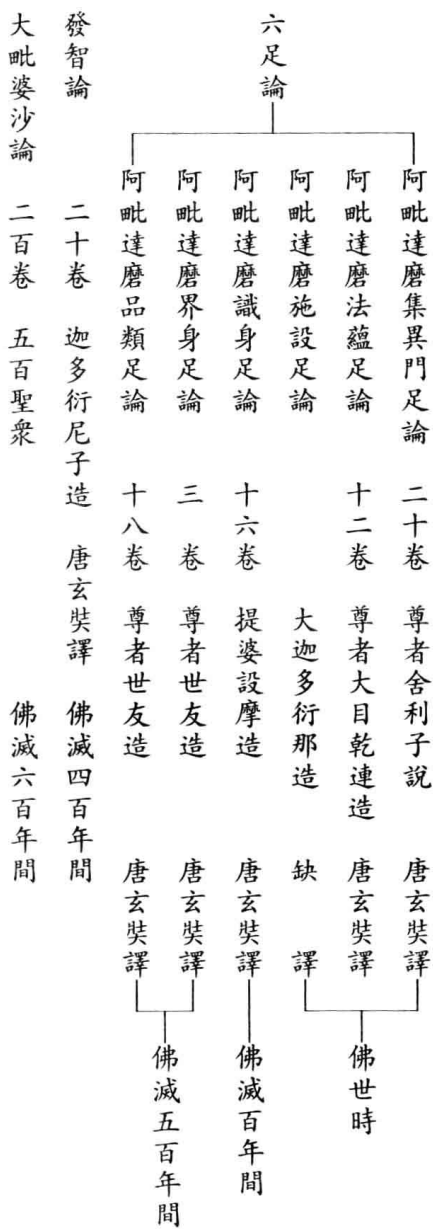 六足論
阿毗達磨集異門足論 二十卷 尊者舍利子說 唐玄奘譯
阿毗達磨法蘊足論 十二卷 尊者大目乾連造 唐玄奘譯
阿毗達磨施設足論 大迦多衍那造 缺譯
佛世時
阿毗達磨識身足論 十六卷 提婆設摩造 唐玄奘譯
佛滅百年間
阿毗達磨界身足論 三卷 尊者世友造 唐玄奘譯
阿毗達磨品類足論 十八卷 尊者世友造 唐玄奘譯
佛滅五百年間
發智論 二十卷 迦多衍尼子造 唐玄奘譯 佛滅四百年間
大毗婆沙論 二百卷 五百聖衆 佛滅六百年間